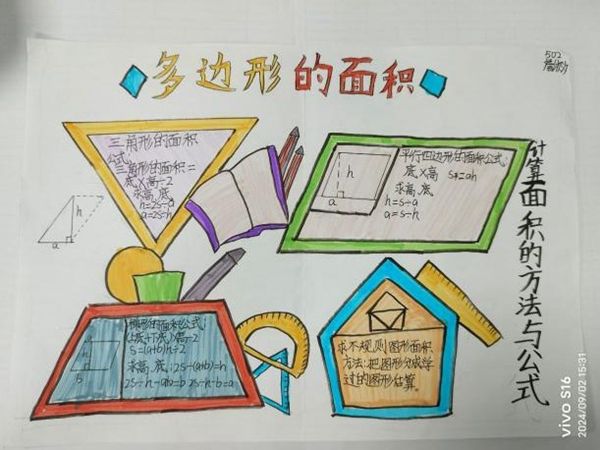 多边形的面积
502
三角形的面积
公式:
三角形的面积=
底×高÷2
求高.底
h=2s÷a
a=2s÷h
h
a
平行四边形的面积公式:
底×高 S=ah
求高.底
h=s÷a
a=s÷h
h
a
计算面积的方法与公式
梯形的面积公式:
(上底+下底)×高÷2
S=(a+b)h÷2
求高.底:2S÷(a+b)=h
2S÷h-a=b 2S÷h-b=a
a
h
b
求不规则图形面积
方法:把图形分成学
过的图形估算。
vivo S16
2024/09/02 15:31